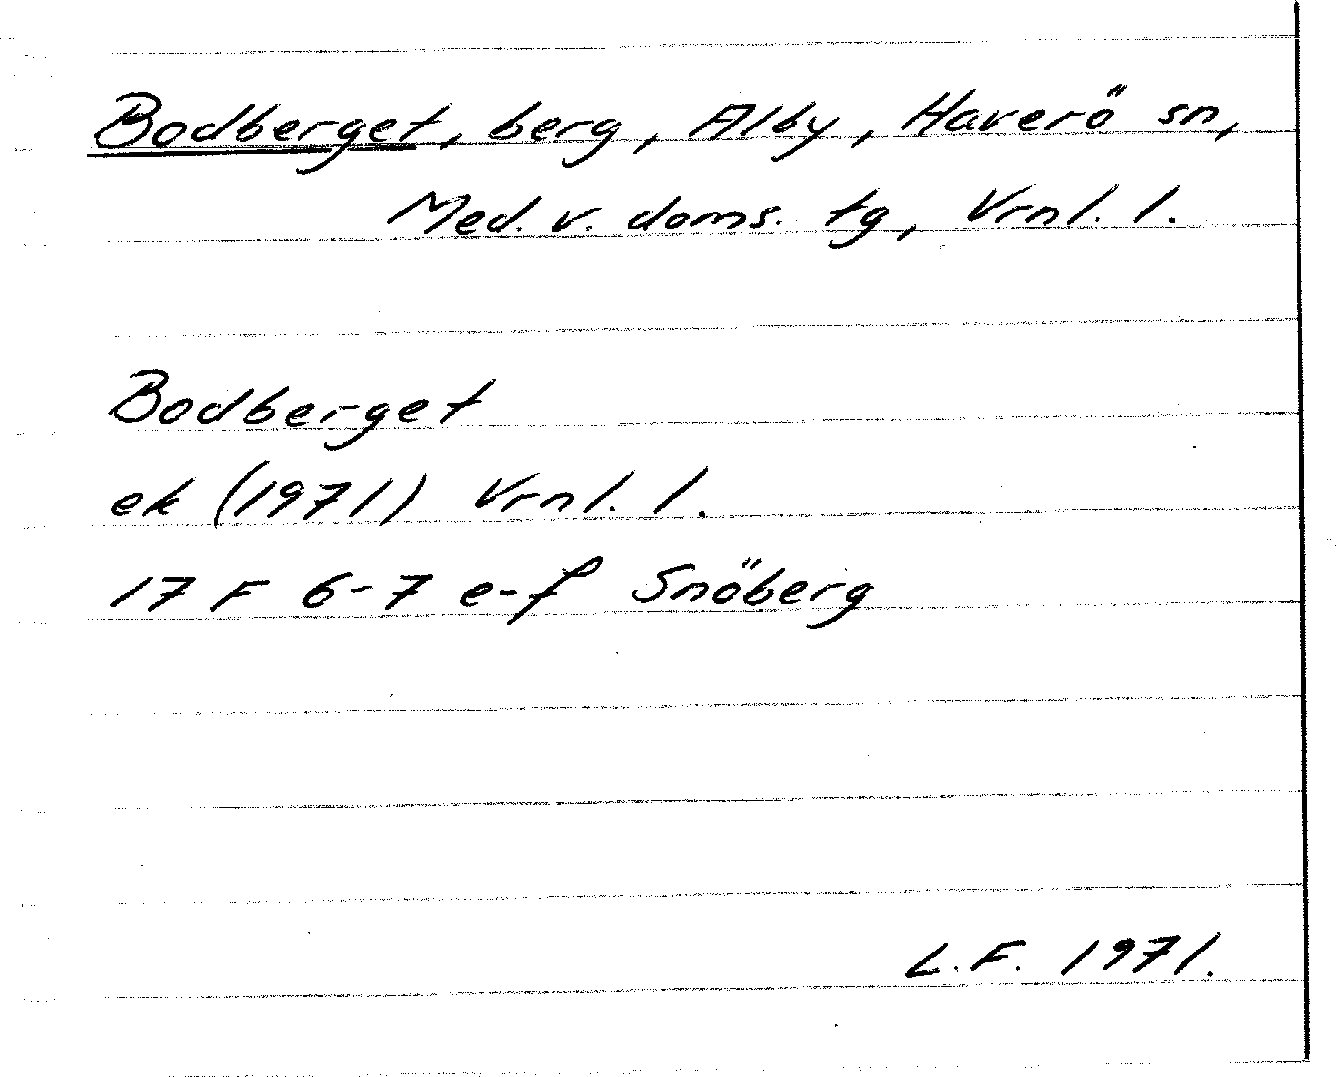 Bodberget, berg, Alby, Haverö sn,
Med. v. doms. tg, Vrnl. l.
Bodberget
ek (1971) Vrnl. l.
17 F 6-7 e-f Snöberg
L.F. 1971.